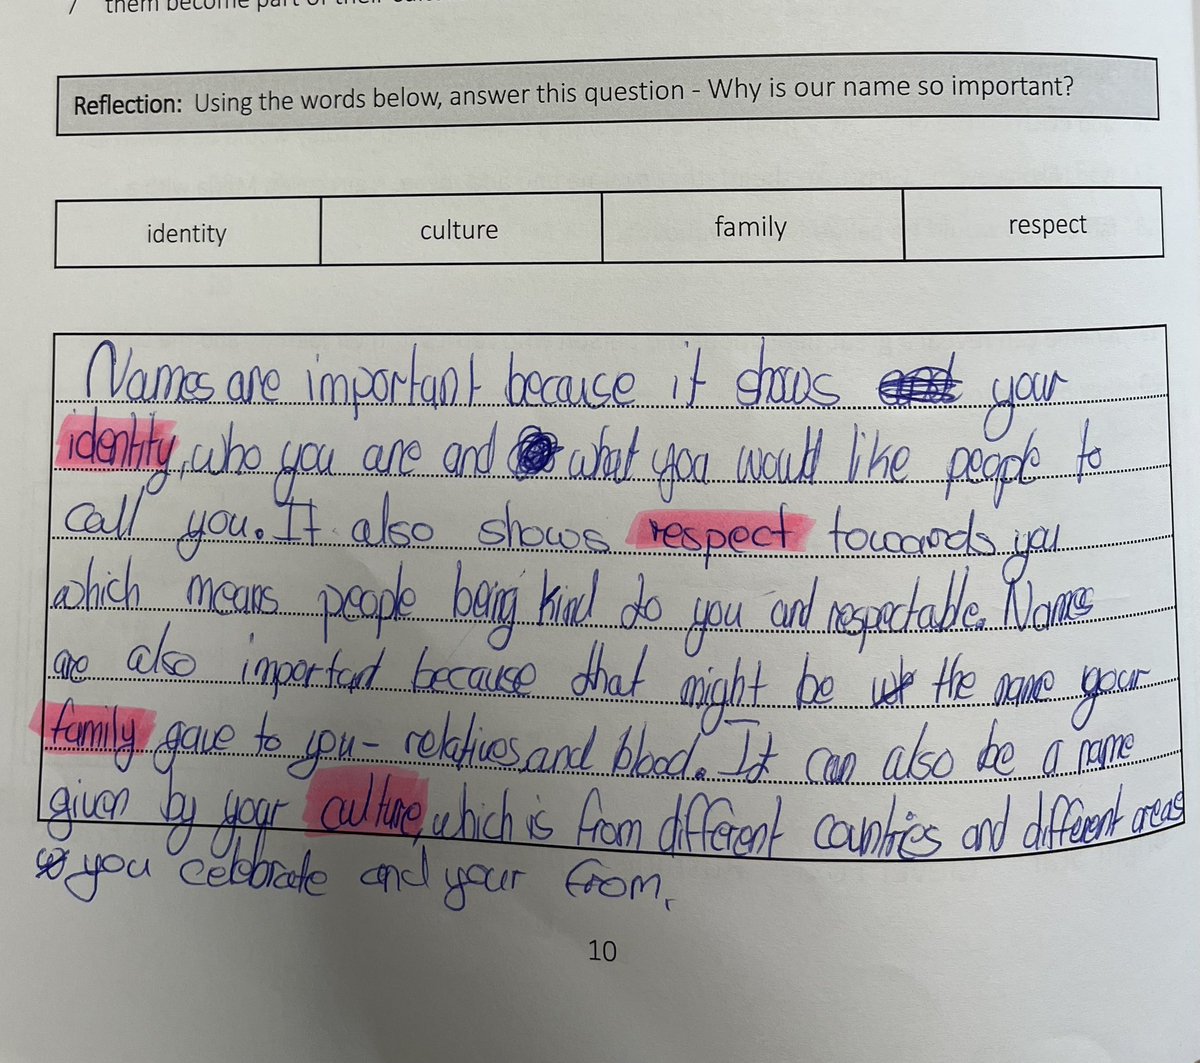 7 them become part of their
Reflection: Using the words below, answer this question - Why is our name so important?
identity culture family respect
Names are important because it shows your
identity, who you are and what you would like people to
call you. It also shows respect towards you
which means people being kind do you and respectable. Names
are also important because that might be the name your
family gave to you - relatives and blood. It can also be a name
given by your culture, which is from different countries and different areas
you celebrate and your from.
10